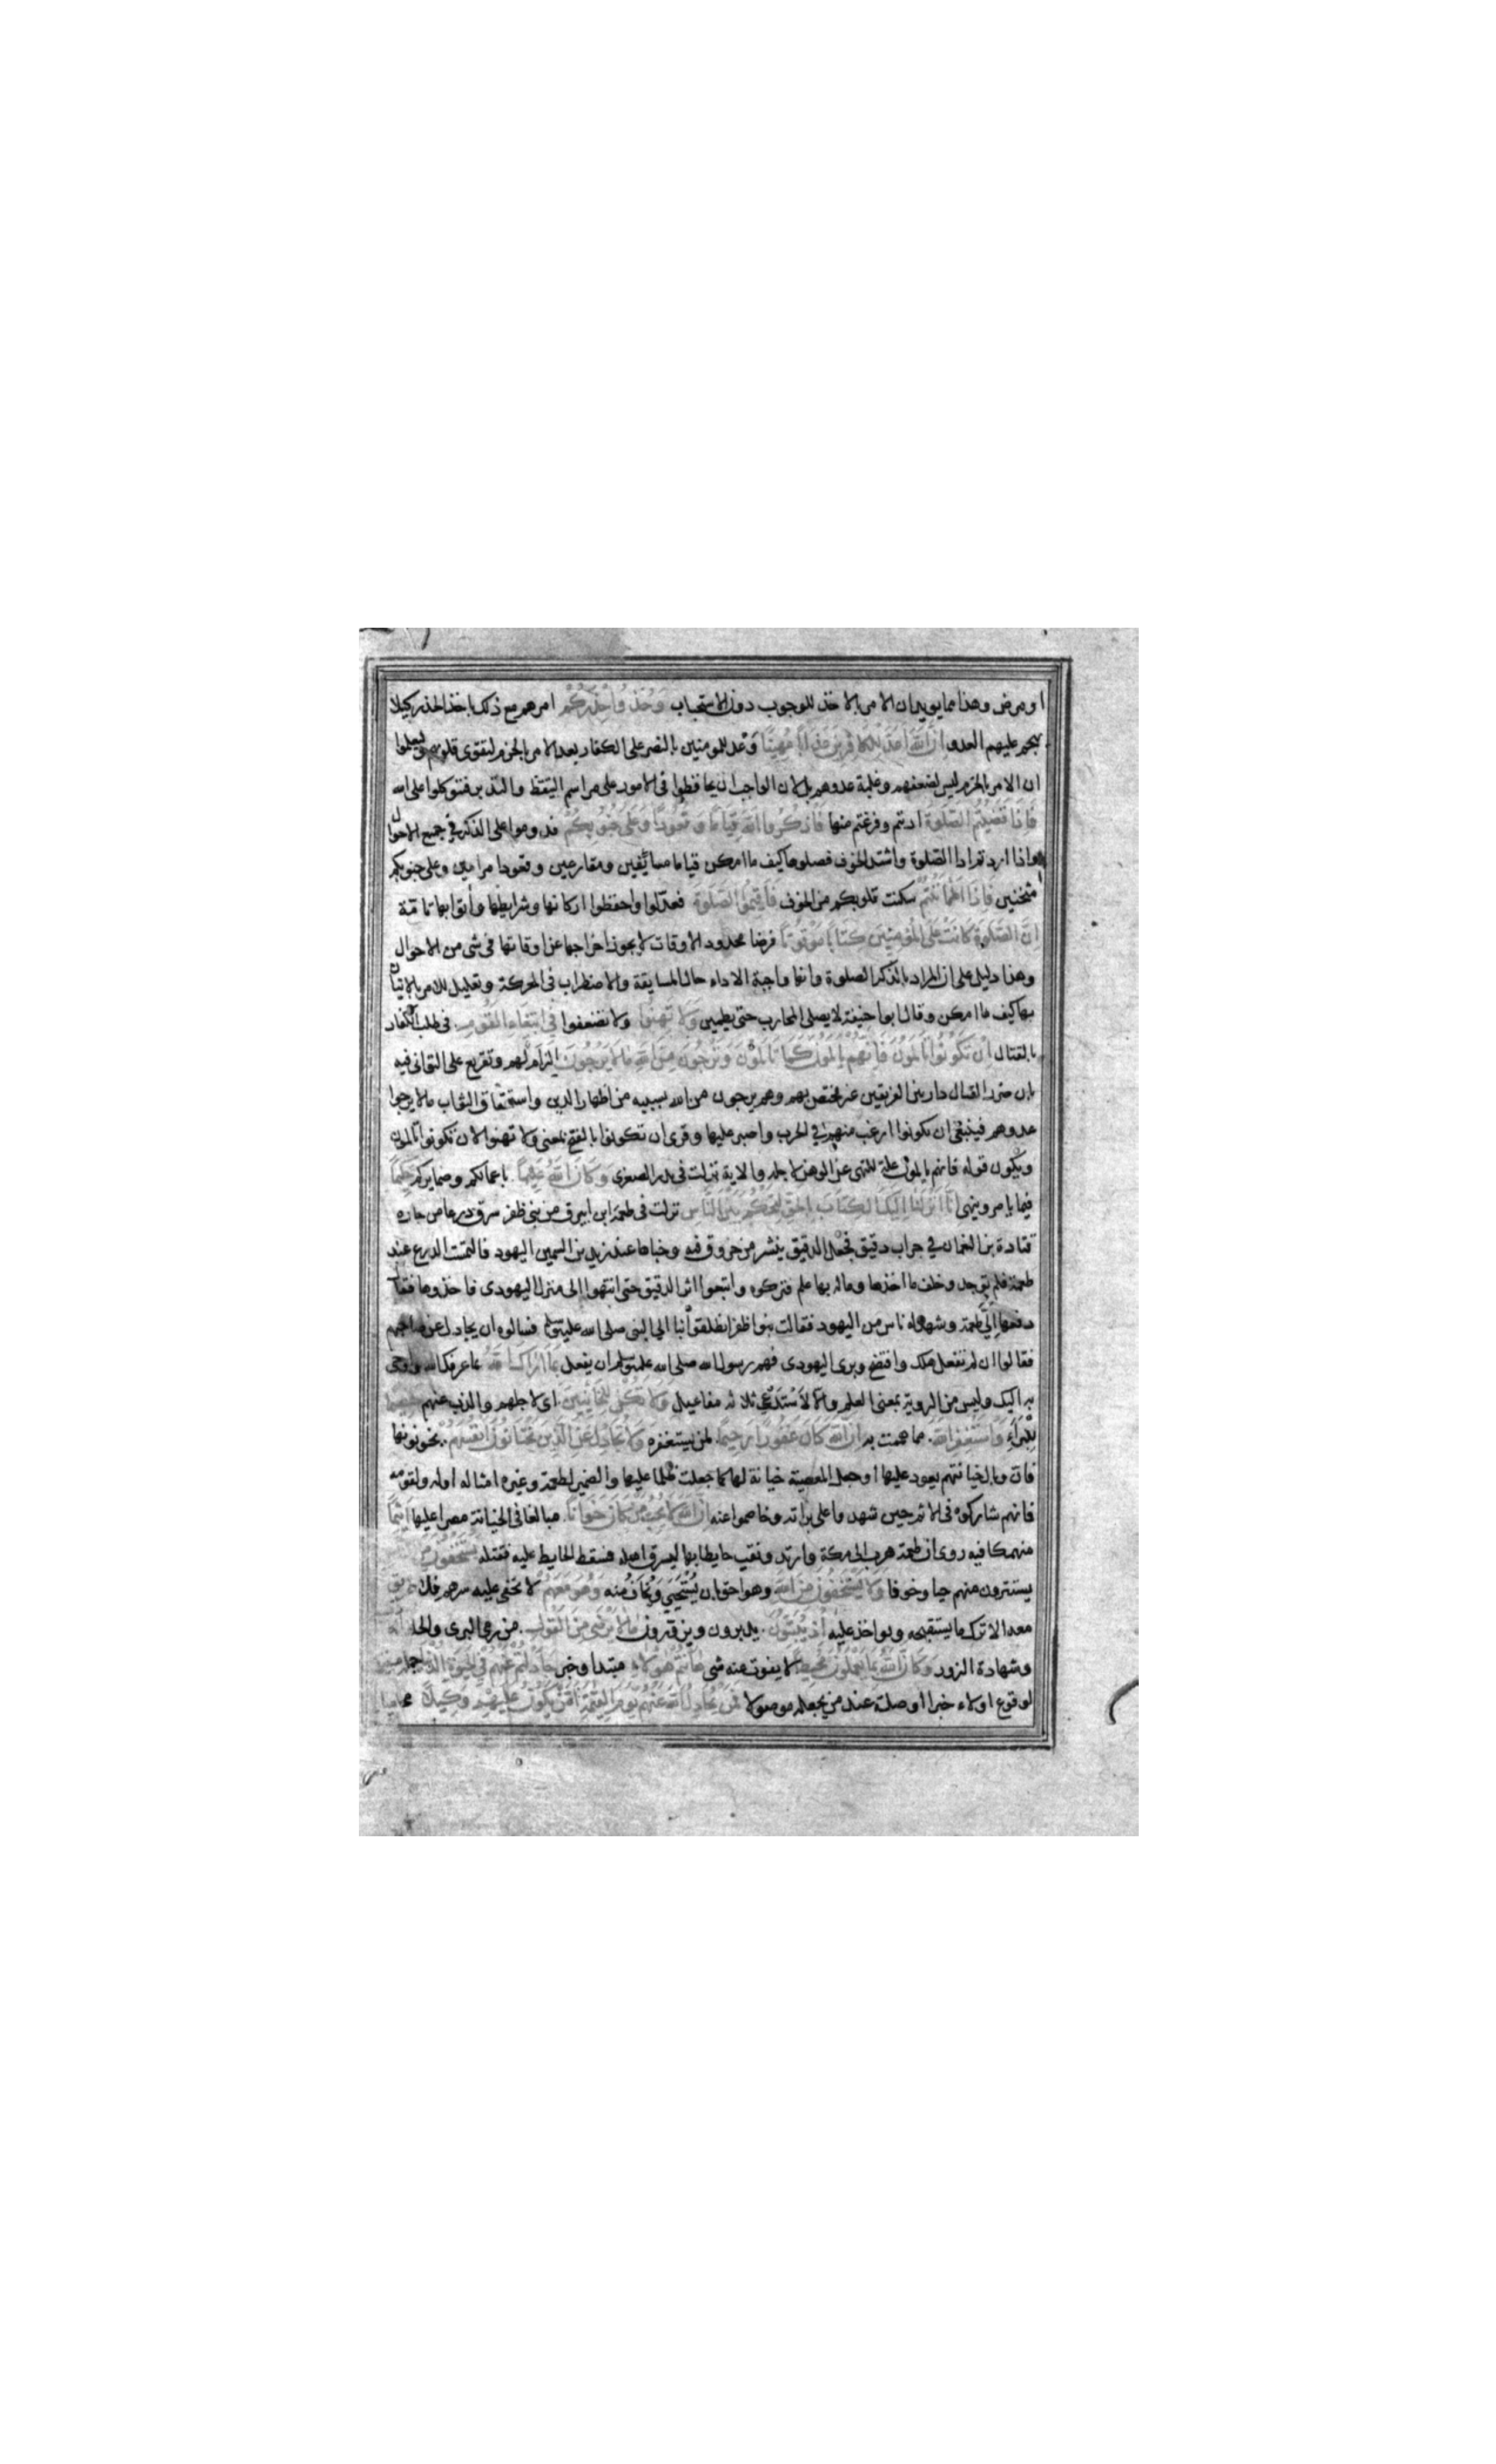 او مرض وهذا مما يويد ان الامر بالاخذ للوجوب دون الاستحباب وَخُذُوا حِذْرَكُمْ امرهم مع ذلك باخذ الحذر كيلا
يهجم عليهم العدو اِنَّ اللّٰهَ اَعَدَّ لِلْكَافِرِينَ عَذَابًا مُهِينًا وعد للمومنين بالنصر على الكفار بعد الامر بالحزم لتقوى قلوبهم وليعلموا
ان الامر بالحزم ليس لضعفهم وغلبة عدوهم بل لان الواجب ان يحافظوا فى الامور على مراسم التيقظ والتدبر فتوكلوا على الله
فَاِذَا قَضَيْتُمُ الصَّلٰوةَ اديتم وفرغتم منها فَاذْكُرُوا اللّٰهَ قِيَامًا وَقُعُودًا وَعَلٰى جُنُوبِكُمْ فدوموا على الذكر في جميع الاحوال
واذا اردتم اداا الصلوة واشتد الخوف فصلوها كيف ما امكن قياما مسايفين ومقارعين وقعودا مرامين وعلى جنوبكم
مثخنين فَاِذَا اطْمَأْنَنْتُمْ سكنت قلوبكم من الخوف فَاَقِيمُوا الصَّلٰوةَ فعدّلوا واحفظوا اركانها وشرايطها وأتوا بها تامّة
اِنَّ الصَّلٰوةَ كَانَتْ عَلَى الْمُؤْمِنِينَ كِتَابًا مَوْقُوتًا فرضا محدود الاوقات لا يجوز اخراجها عن اوقاتها فى شى من الاحوال
وهذا دليل على ان المراد بالذكر الصلوة وانها واجبة الاداء حال المسايقة والاضطراب فى المعركة وتعليل للامر بالاتيان
بها كيف ما امكن وقال ابوا حنيفة لا يصلى المحارب حتى يطمين وَلَا تَهِنُوا ولا تضعفوا فِي ابْتِغَاءِ الْقَوْمِ فى طلب الكفار
بالقتال اِنْ تَكُونُوا تَأْلَمُونَ فَاِنَّهُمْ يَأْلَمُونَ كَمَا تَأْلَمُونَ وَتَرْجُونَ مِنَ اللّٰهِ مَا لَا يَرْجُونَ الزام لهم وتقريع على التوانى فيه
بان ضرر القتال دار بين الفريقين غير مختص بهم وهم يرجون من الله بسببه من اظهار الدين واستحقاق الثواب ما لا يرجوا
عدوهم فينبغى ان يكونوا ارغب منهم في الحرب واصبر عليها وقرى ان تكونوا بالفتح بمعنى ولا تهنوا لان تكونوا تالمون
ويكون قوله فانهم يالمون علة للنهى عن الوهن لاجله والاية نزلت فى بدر الصغرى وَكَانَ اللّٰهُ عَلِيمًا باعمالكم وضمايركم حَكِيمًا
فيما يامر وينهى اِنَّا اَنْزَلْنَا اِلَيْكَ الْكِتَابَ بِالْحَقِّ لِتَحْكُمَ بَيْنَ النَّاسِ نزلت فى طعمة ابن ابيرق من بنى ظفر سرق درعا من جاره
قتادة بن النعمان في جراب دقيق فجعل الدقيق ينتشر من خروق فيه وخباها عند زيد بن السمين اليهود فالتمست الدرع عند
طعمة فلم توجد وخلف ما اخذها وماله بها علم فتركوه واتبعوا اثر الدقيق حتى انتهوا الى منزل اليهودى فاخذوها فقال
دفعها إليَّ طعمة وشهد له ناس من اليهود فقالت بنوا ظفر انطلقوا بنا الى النبى صلى الله عليه وسلم فسالوه ان يجادل عن صاحبهم
فقالوا ان لم تفعل هلك وافتضح وبرى اليهودى فهم رسول الله صلى الله عليه وسلم ان يفعل بِمَا اَرَاكَ اللّٰهُ بما عرفك الله واوحى
به اليك وليس من الروية بمعنى العلم والا لاستدعى ثلاثه مفاعيل وَلَا تَكُنْ لِلْخَائِنِينَ اى لاجلهم والذب عنهم خَصِيمًا
لِلْبُرَآءِ وَاسْتَغْفِرِ اللّٰهَ مما هممت به اِنَّ اللّٰهَ كَانَ غَفُورًا رَحِيمًا لمن يستغفره وَلَا تُجَادِلْ عَنِ الَّذِينَ يَخْتَانُونَ اَنْفُسَهُمْ يخونونها
فان وبال خيانتهم يعود عليها او جعل المعصية خيانة لها كما جعلت ظلما عليها والضمير لطعمة وغيره امثاله او له ولقومه
فانهم شاركوه فى الاثم حين شهدوا على براته وخاصموا عنه اِنَّ اللّٰهَ لَا يُحِبُّ مَنْ كَانَ خَوَّانًا مبالغا فى الخيانة مصرا عليها اَثِيمًا
منهمكا فيه روى ان طعمة هرب الى مكة وارتد ونقب حايطا بها ليسرق اهله فسقط الحايط عليه فقتله يَسْتَخْفُونَ
يستترون منهم حيا وخوفا وَلَا يَسْتَخْفُونَ مِنَ اللّٰهِ وهو احق بان يُسْتَحْيَى ويُخَافُ منه وَهُوَ مَعَهُمْ لا تخفى عليه سرهم فلا طريق
معه الا ترك ما يستقبحه ويواخذ عليه اِذْ يُبَيِّتُونَ يدبرون ويزوّرون مَا لَا يَرْضٰى مِنَ الْقَوْلِ من رمى البرى والحلف
وشهادة الزور وَكَانَ اللّٰهُ بِمَا يَعْمَلُونَ مُحِيطًا لا يفوت عنه شى هَا اَنْتُمْ هٰؤُلَاءِ مبتدا وخبر جَادَلْتُمْ عَنْهُمْ فِي الْحَيٰوةِ الدُّنْيَا جملة مبينة
لوقوع اولاء خبرا او صلة عند من يجعله موصولا فَمَنْ يُجَادِلُ اللّٰهَ عَنْهُمْ يَوْمَ الْقِيٰمَةِ اَمْ مَنْ يَكُونُ عَلَيْهِمْ وَكِيلًا محاميا